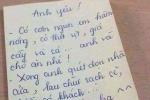 Anh yêu!
- Có cơm ngon em hâm
nóng, có thịt vịt, giả
cầy và cá ... anh về
cho ăn nhé!
- Xong anh quét dọn nhà
cửa, lau chùi sạch sẽ,
có khách...